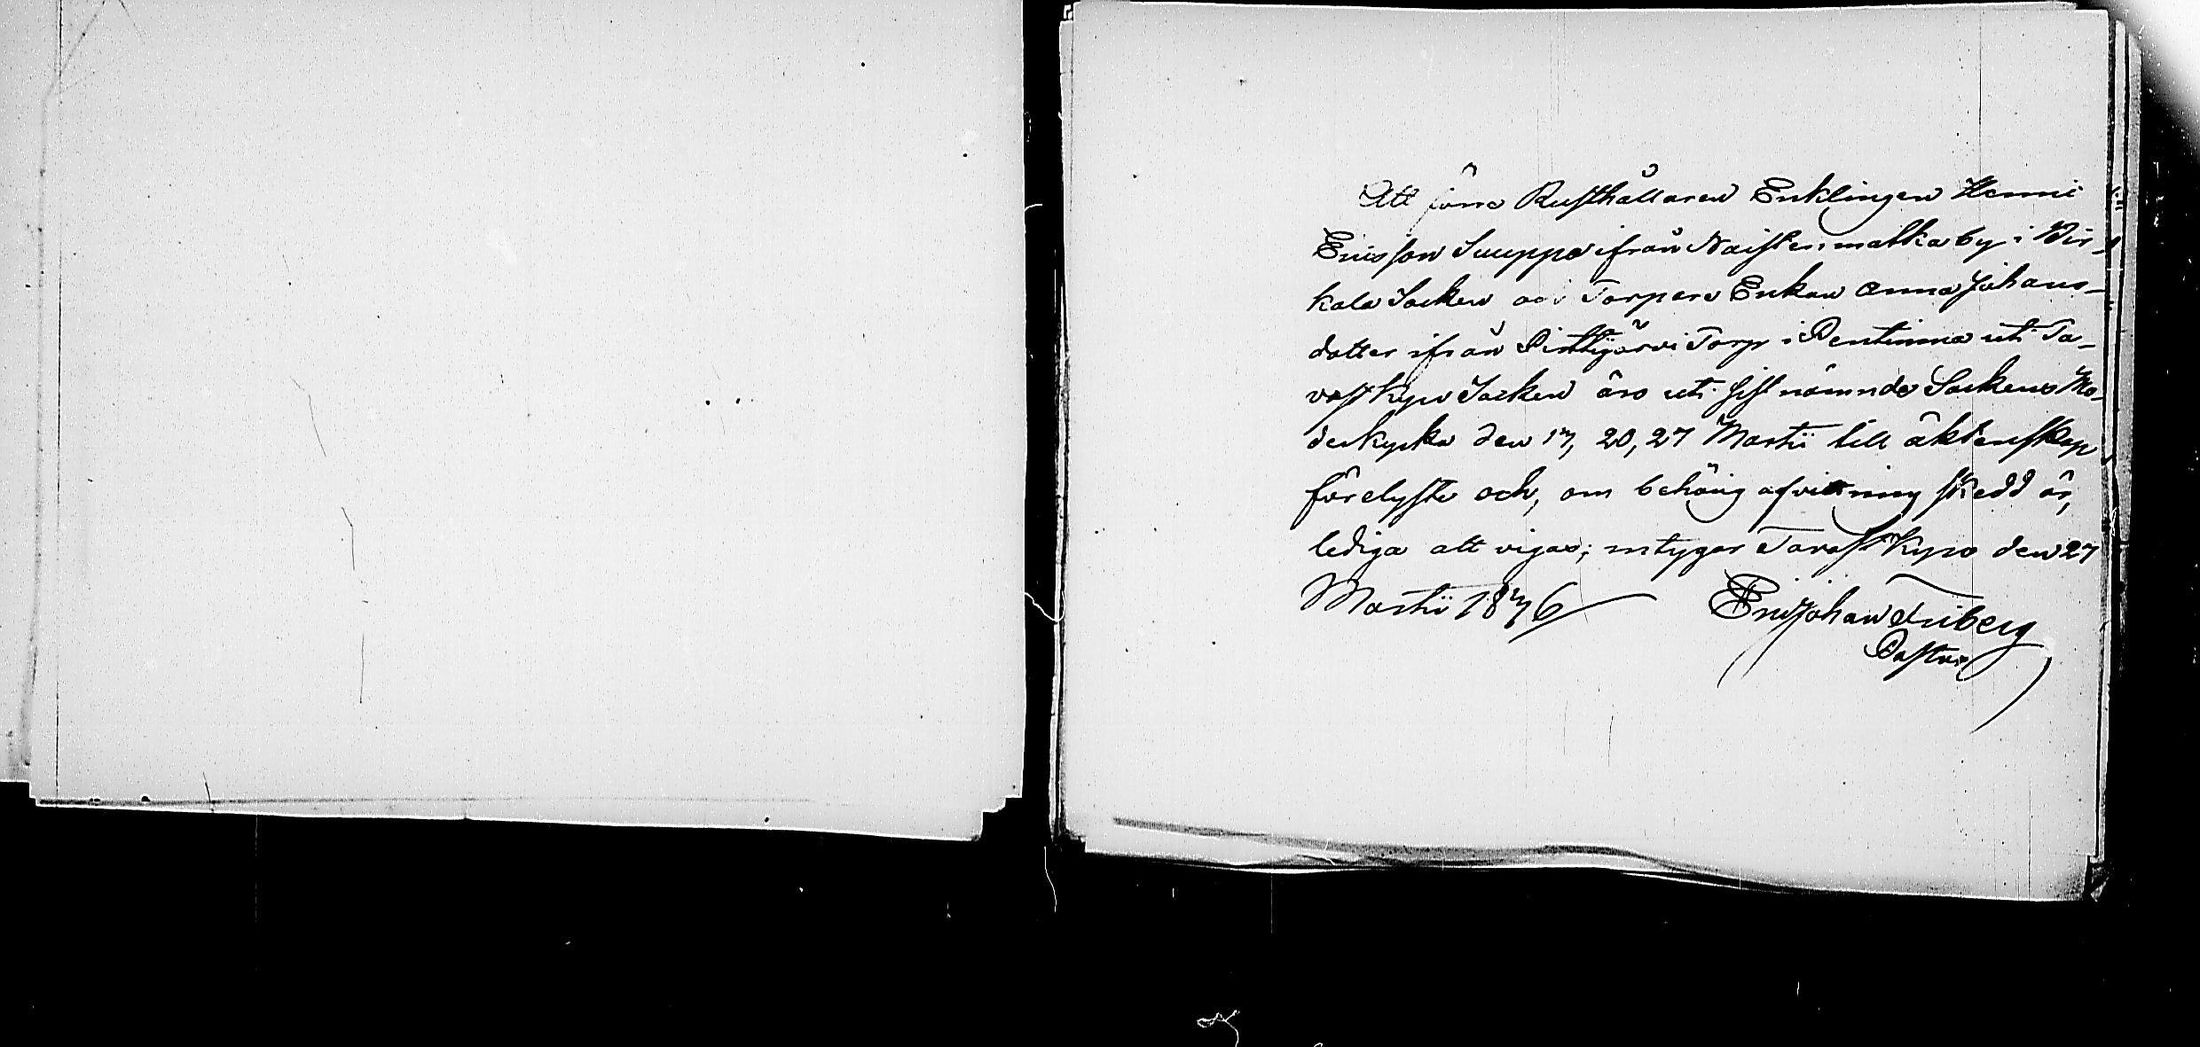 Att förra Rusthållaren Enklingen Henric
Ericsson Suuppa ifrån Naistenmatka by i Bir-
kala Socken och Torpare Enkan Anna Johans-
dotter ifrån Pinttijärvi Torp i Pentinma uti Ta-
vastkyro Socken äro uti sistnämnde Sockens Mo-
derkyrka den 13, 20, 27 Martii till äktenskap
förelyste och, om behörig afvittning skedd är,
lediga att vigas; intygar Tavastkyro den 27
Martii 1836 Eric Johan Friberg
Pastor